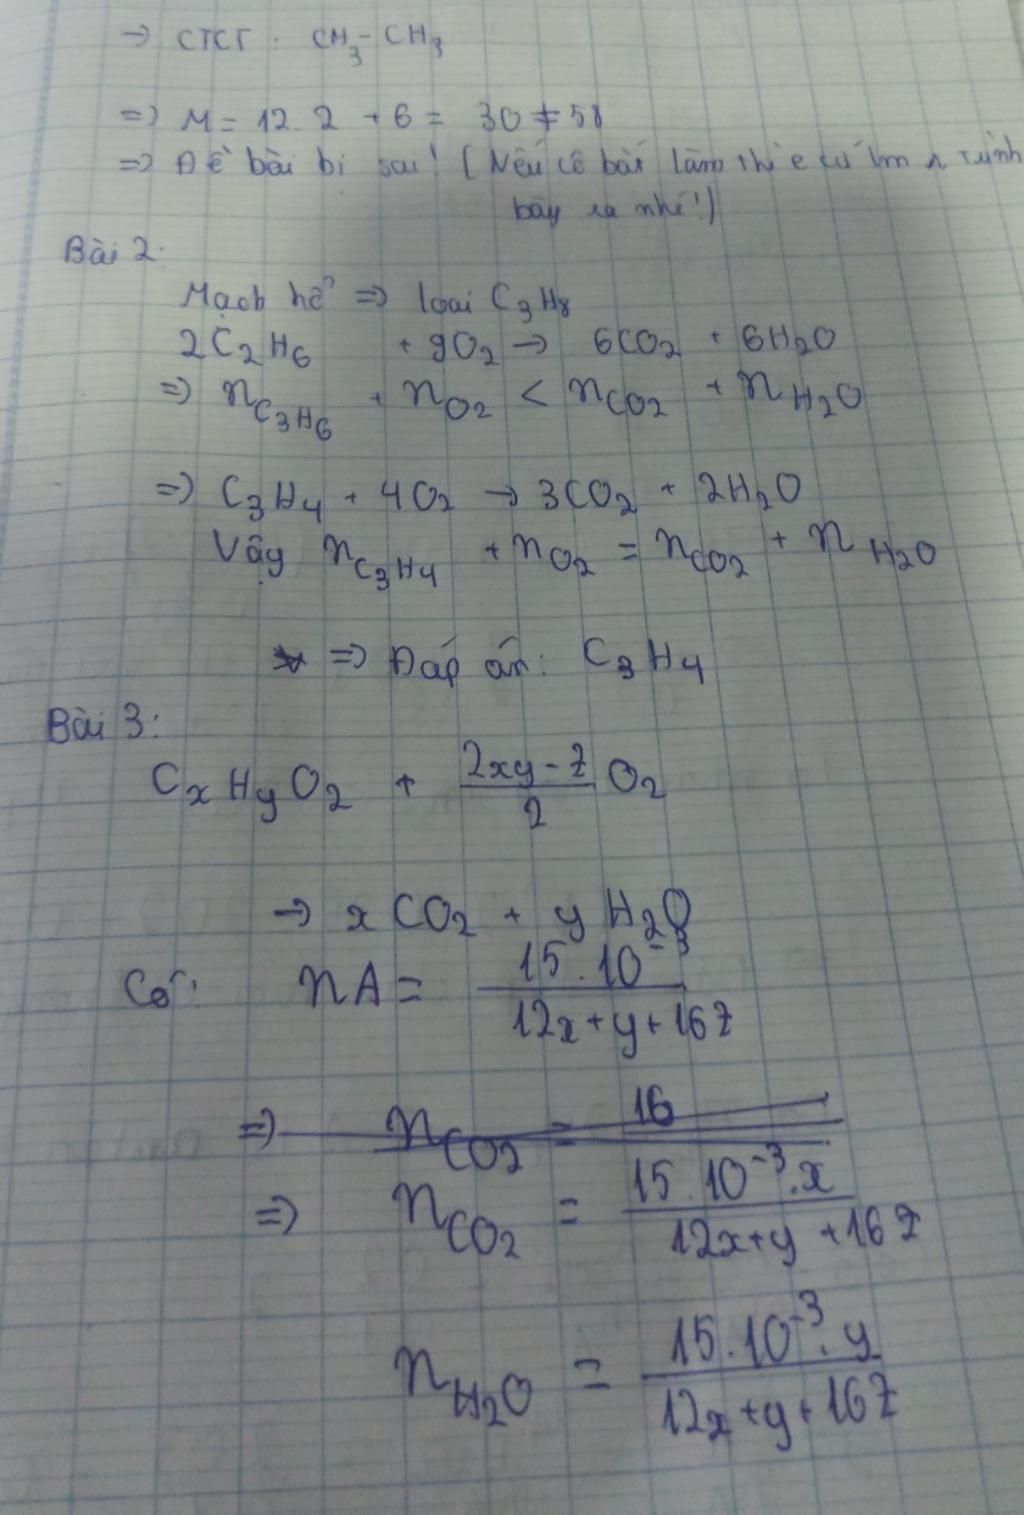 → CTCT. CH3-CH3
=> M = 12.2 + 6 = 30 ≠ 58
=> Đề bài bị sai! (Nếu cô bắt làm thì e cứ trình
bày ra nhé!)
Bài 2:
Mạch hở => loại C3H8
2C2H6 + 9O2 → 6CO2 + 6H2O
=> nC3H6 + nO2 < nCO2 + nH2O
=> C3H4 + 4O2 → 3CO2 + 2H2O
Vậy nC3H4 + nO2 = nCO2 + nH2O
=> Đáp án: C3H4
Bài 3:
CxHyO2 + (2xy - z)/2 O2
→ x CO2 + y H2O
Có: nA = 15.10^-3 / (12x+y+16z)
=> nCO2 = 16
=> nCO2 = 15.10^-3.x / (12x+y+16z)
nH2O = 15.10^-3.y / (12x+y+16z)